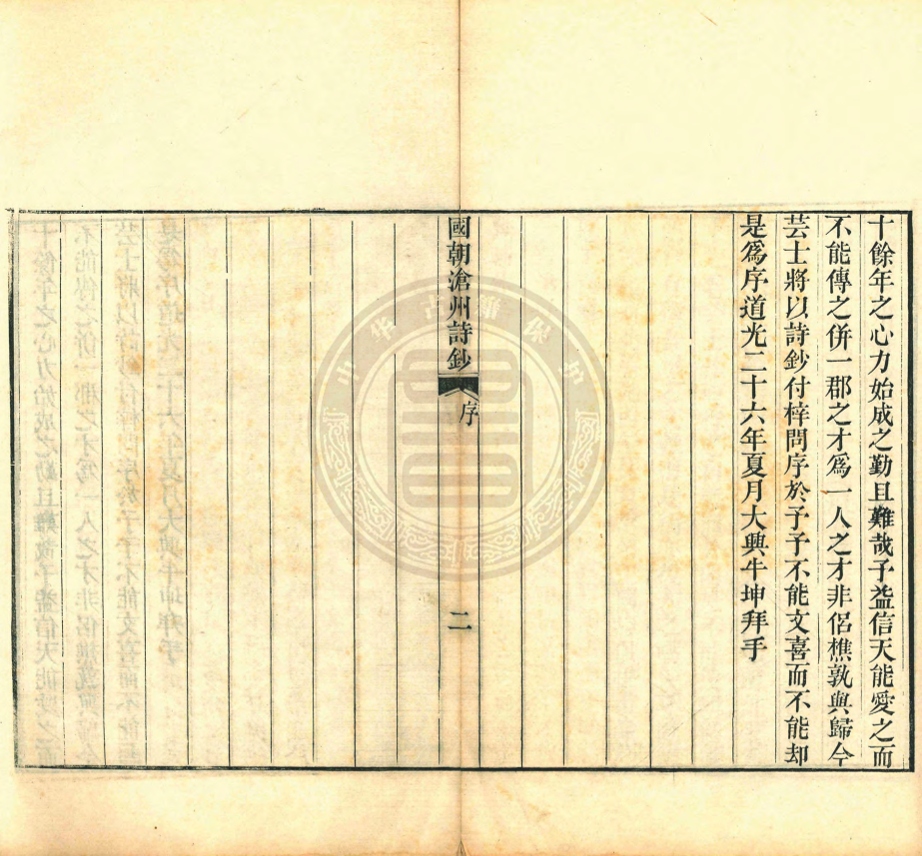 十餘年之心力始成之勤且難哉予益信天能愛之而
不能傳之併一郡之才爲一人之才非侶樵孰與歸今
芸士將以詩鈔付梓問序於予予不能文喜而不能却
是爲序道光二十六年夏月大興牛坤拜手
國朝滄州詩鈔 序 二